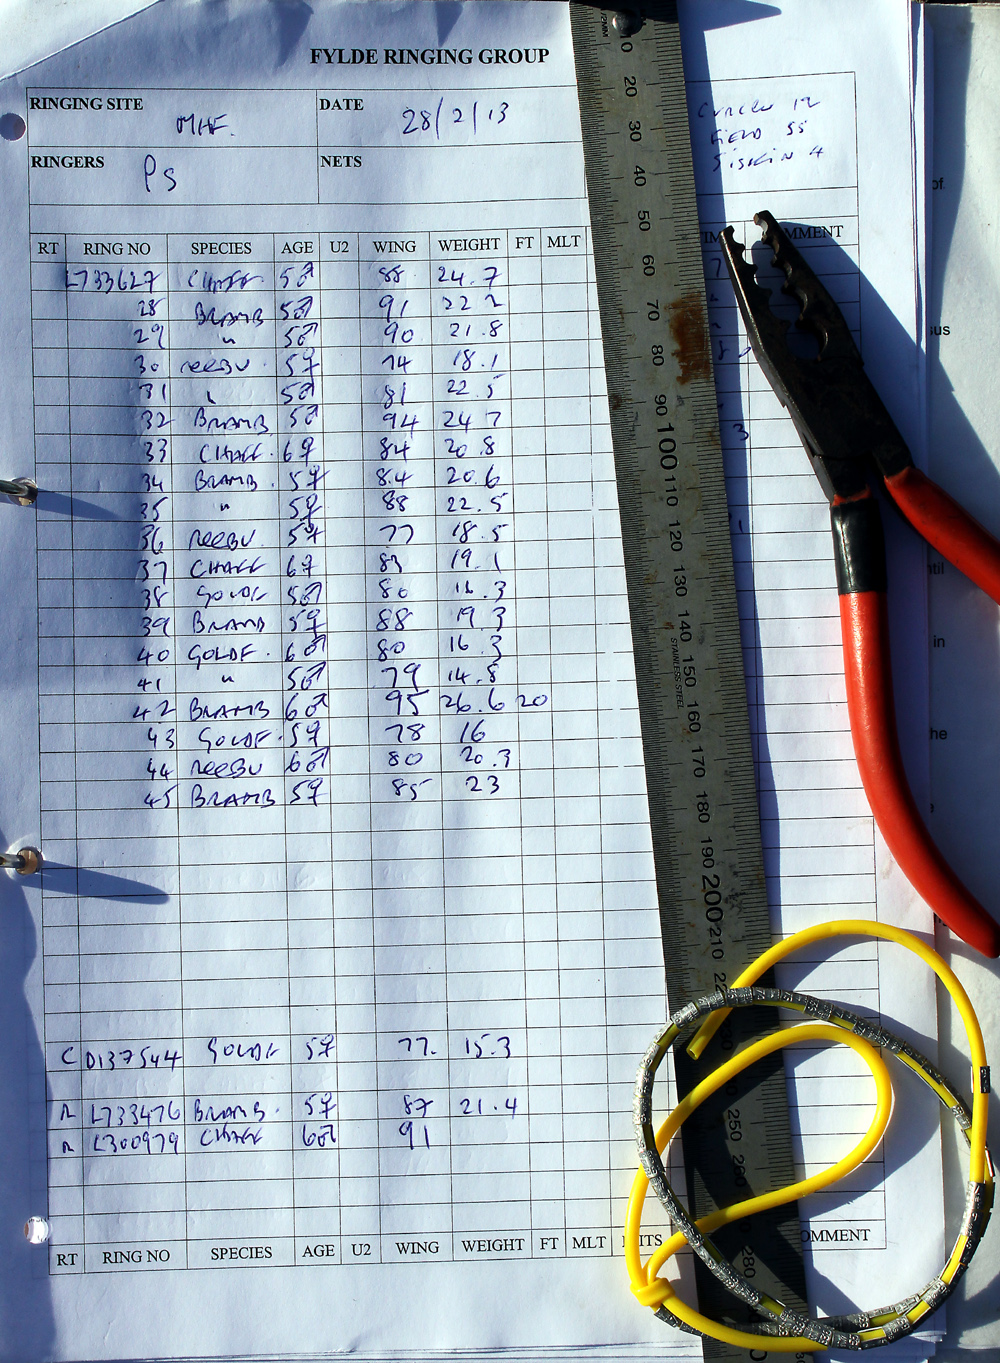 FYLDE RINGING GROUP
RINGING SITE MHF. DATE 28/2/13
RINGERS PS NETS
CURLEW 12
FIELD 55
SISKIN 4
RT RING NO SPECIES AGE U2 WING WEIGHT FT MLT MMENT
L733627 CHAFF. 5♂ 88 24.7
28 BRAMB 5♂ 91 22.2
29 " 5♂ 90 21.8
30 REEBU. 5♀ 74 18.1
31 " 5♂ 81 22.5
32 BRAMB 5♂ 94 24.7
33 CHAFF. 6♀ 84 20.8
34 BRAMB. 5♀ 84 20.6
35 " 5♀ 88 22.5
36 REEBU. 5♀ 77 18.5
37 CHAFF 6♀ 83 19.1
38 GOLDF 5♂ 80 16.3
39 BRAMB 5♀ 88 19.3
40 GOLDF. 6♂ 80 16.3
41 " 5♂ 79 14.8
42 BRAMB 6♂ 95 26.6 20
43 GOLDF. 5♀ 78 16
44 REEBU 6♂ 80 20.3
45 BRAMB 5♀ 85 23
C D137544 GOLDF 5♀ 77. 15.3
R L733476 BRAMB. 5♀ 87 21.4
R L300979 CHAFF 6♂ 91
RT RING NO SPECIES AGE U2 WING WEIGHT FT MLT ITS OMMENT
0
20
30
40
50
60
70
80
90
100
110
120
130
140
STAINLESS STEEL
150
160
170
180
190
200
210
250
280
of
sus
ntil
in
he